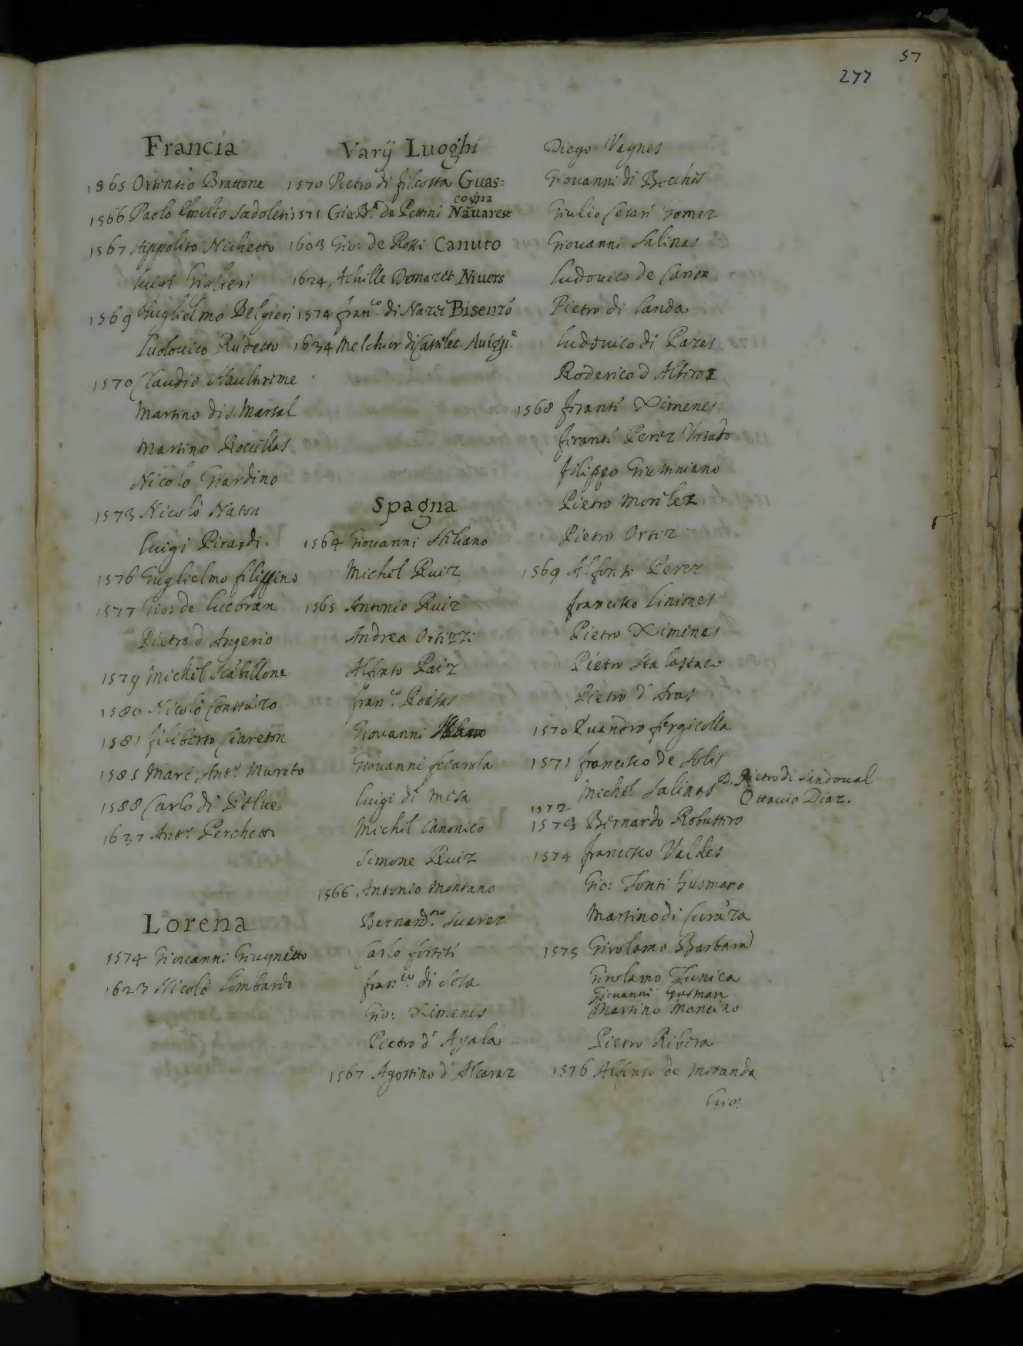 57
277
Francia
1565 Ortensio Brattone
1566 Paolo Emilio Sadoleti
1567 Hippolito Nechetto
Luigi Griglieri
1569 Guglielmo Belgieri
Ludovico Rudetto
1570 Claudio
Martino dis Martel
Martino Rocillas
Nicolo Giardino
1573 Nicolò Naton
Luigi Pirardi
1576 Guglielmo filippino
1577 Gio: de Lucbran
Pietro d Angerio
1579 Michel Scabillone
1580 Nicolò
1581 filiberto Careton
1585 Marc' Ant.º Mureto
1588 Carlo di
1637 Ant.º Perchetti
Lorena
1574 Giovanni Giugnetto
1623 Nicolò Lombardo
Varij Luoghi
1570 Pietro di filcotta Guas:
cogna
1571 Gio Ba de Pettini Navarese
1603 Gio: de Rossi Canuto
1624 Achille Donaret Nivers
1574 fran.co di Nazei Bisenzo
1634 Melchior di Avigñ.e
Spagna
1564 Giovanni
Michel Ruiz
1565 Antonio Ruiz
Andrea Ortizzi
Alfonso Paiz
fran.co
Giovanni
Giovanni
Luigi di Mesa
Michel Canonico
Simone Ruiz
1566 Antonio Montano
Bernard.no Suarez
Carlo fortiti
fran.co di Sosa
Gio: Ximenes
Pietro d' Ayala
1567 Agostino d' Alcaraz
Diego Vagnes
Giovanni di Becchis
Giulio Cesari Gomez
Giovanni Salinas
Ludovico de Carion
Pietro di Canda
Ludovico di Pares
Roderico d
1568 Ximenes
Perez
filippo Giustiniano
Pietro Morilez
Pietro Ortiz
1569 Alfonso Perez
francisco Liniones
Pietro Ximines
Pietro
Pietro d'
1570
1571 francisco de Solis
Michel Salinas D. Pietro di Sindoval
1572 Ottavio Diaz.
1573 Bernardo Robustiro
1574 francesco Valdes
Gio: Gusmano
Martino di
1575 Girolamo Barbara
Girolamo Zunica
Giovanni Gusman
Martino Mancino
Pietro Ribera
1576 Alfonso de Miranda
Gio: